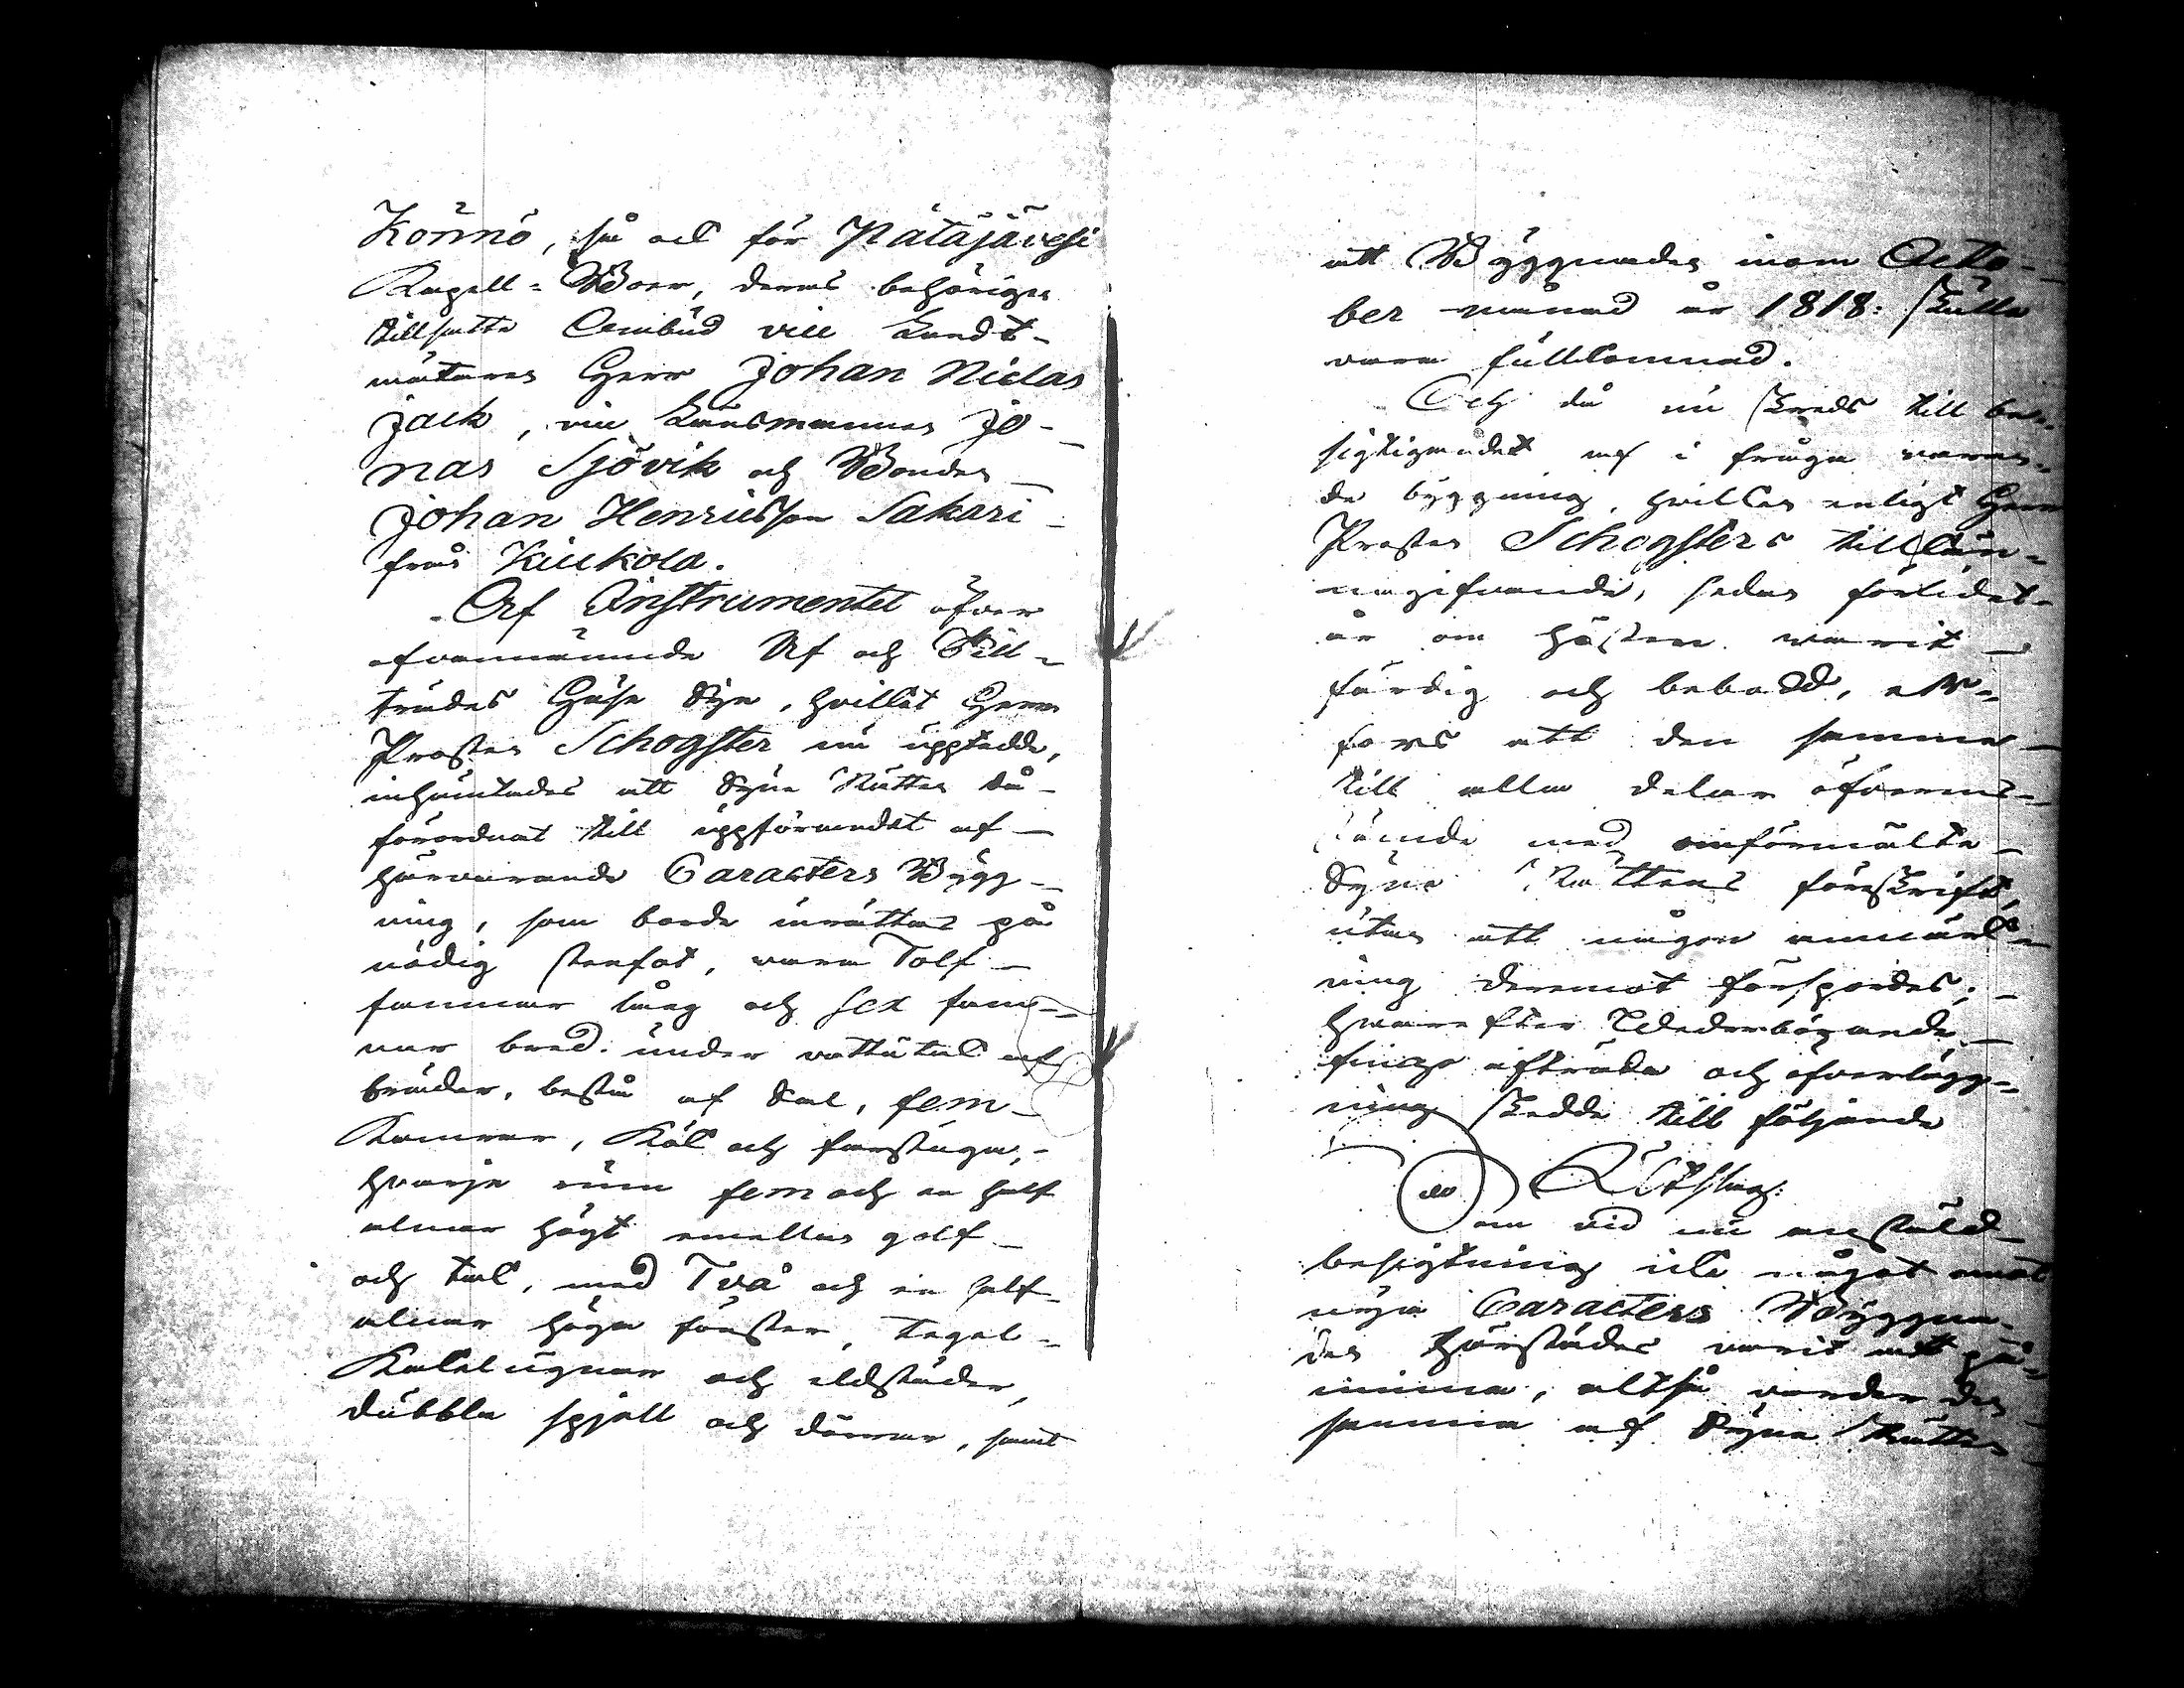 Könnö, så ock för Pätäjävesi
Kapell-Boer, deras behörigen
tillsatte Ombud vice Landt-
mätaren Herr Johan Niclas
Jack, vice Länsmannen Jo-
nas Sjövik och Bonden
Johan Henricsson Sakari
från Kuikola.
Af Instrumentet öfver
ofvannämnde Af och Till-
trädes Huse Syn, hvilket Herr
Prosten Schogster nu uppteedde,
inhämtades att Syne Rätten då
förordnat till uppförandet af
härvarande Caracters Bygg-
ning, som borde inrättas på
nödig stenfot, vara Tolf
famnar lång och Sex fam-
nar bred under vattutak af
bräder, bestå af Sal, fem
Kamrar, Kök och farstuga,
hvarje rum fem och en half
alnar högt emellan golf
och tak, med Två och en half
alnar höga fönster, tegel-
Kakelugnar och eldstäder,
dubbla spjäll och dörrar, samt
att Byggnaden inom Octo-
ber månad år 1818: skulle
vara fullkomnad.
Och då nu skreds till be-
sigtigandet af i fråga varan-
de byggning, hvilken enligt Herr
Prosten Schogsters tillkän-
nagifvande, sedan förledet
år om hösten warit
färdig och bebodd, er-
fors att den samma
till alla delar öfverens-
kämde med omförmälte
Syne Rättens föreskrift,
utan att någon anmärk-
ning deremot förspordes;
hwarefter Wederbörande
fingo afträda och öfverlägg-
ning skedde till följande
Utslag:
Som vid nu anstäld
besigtning icke något emot
nya Caracters Byggna-
den härstädes varit att på-
minna, altså varder den
samma af Syne Rätten